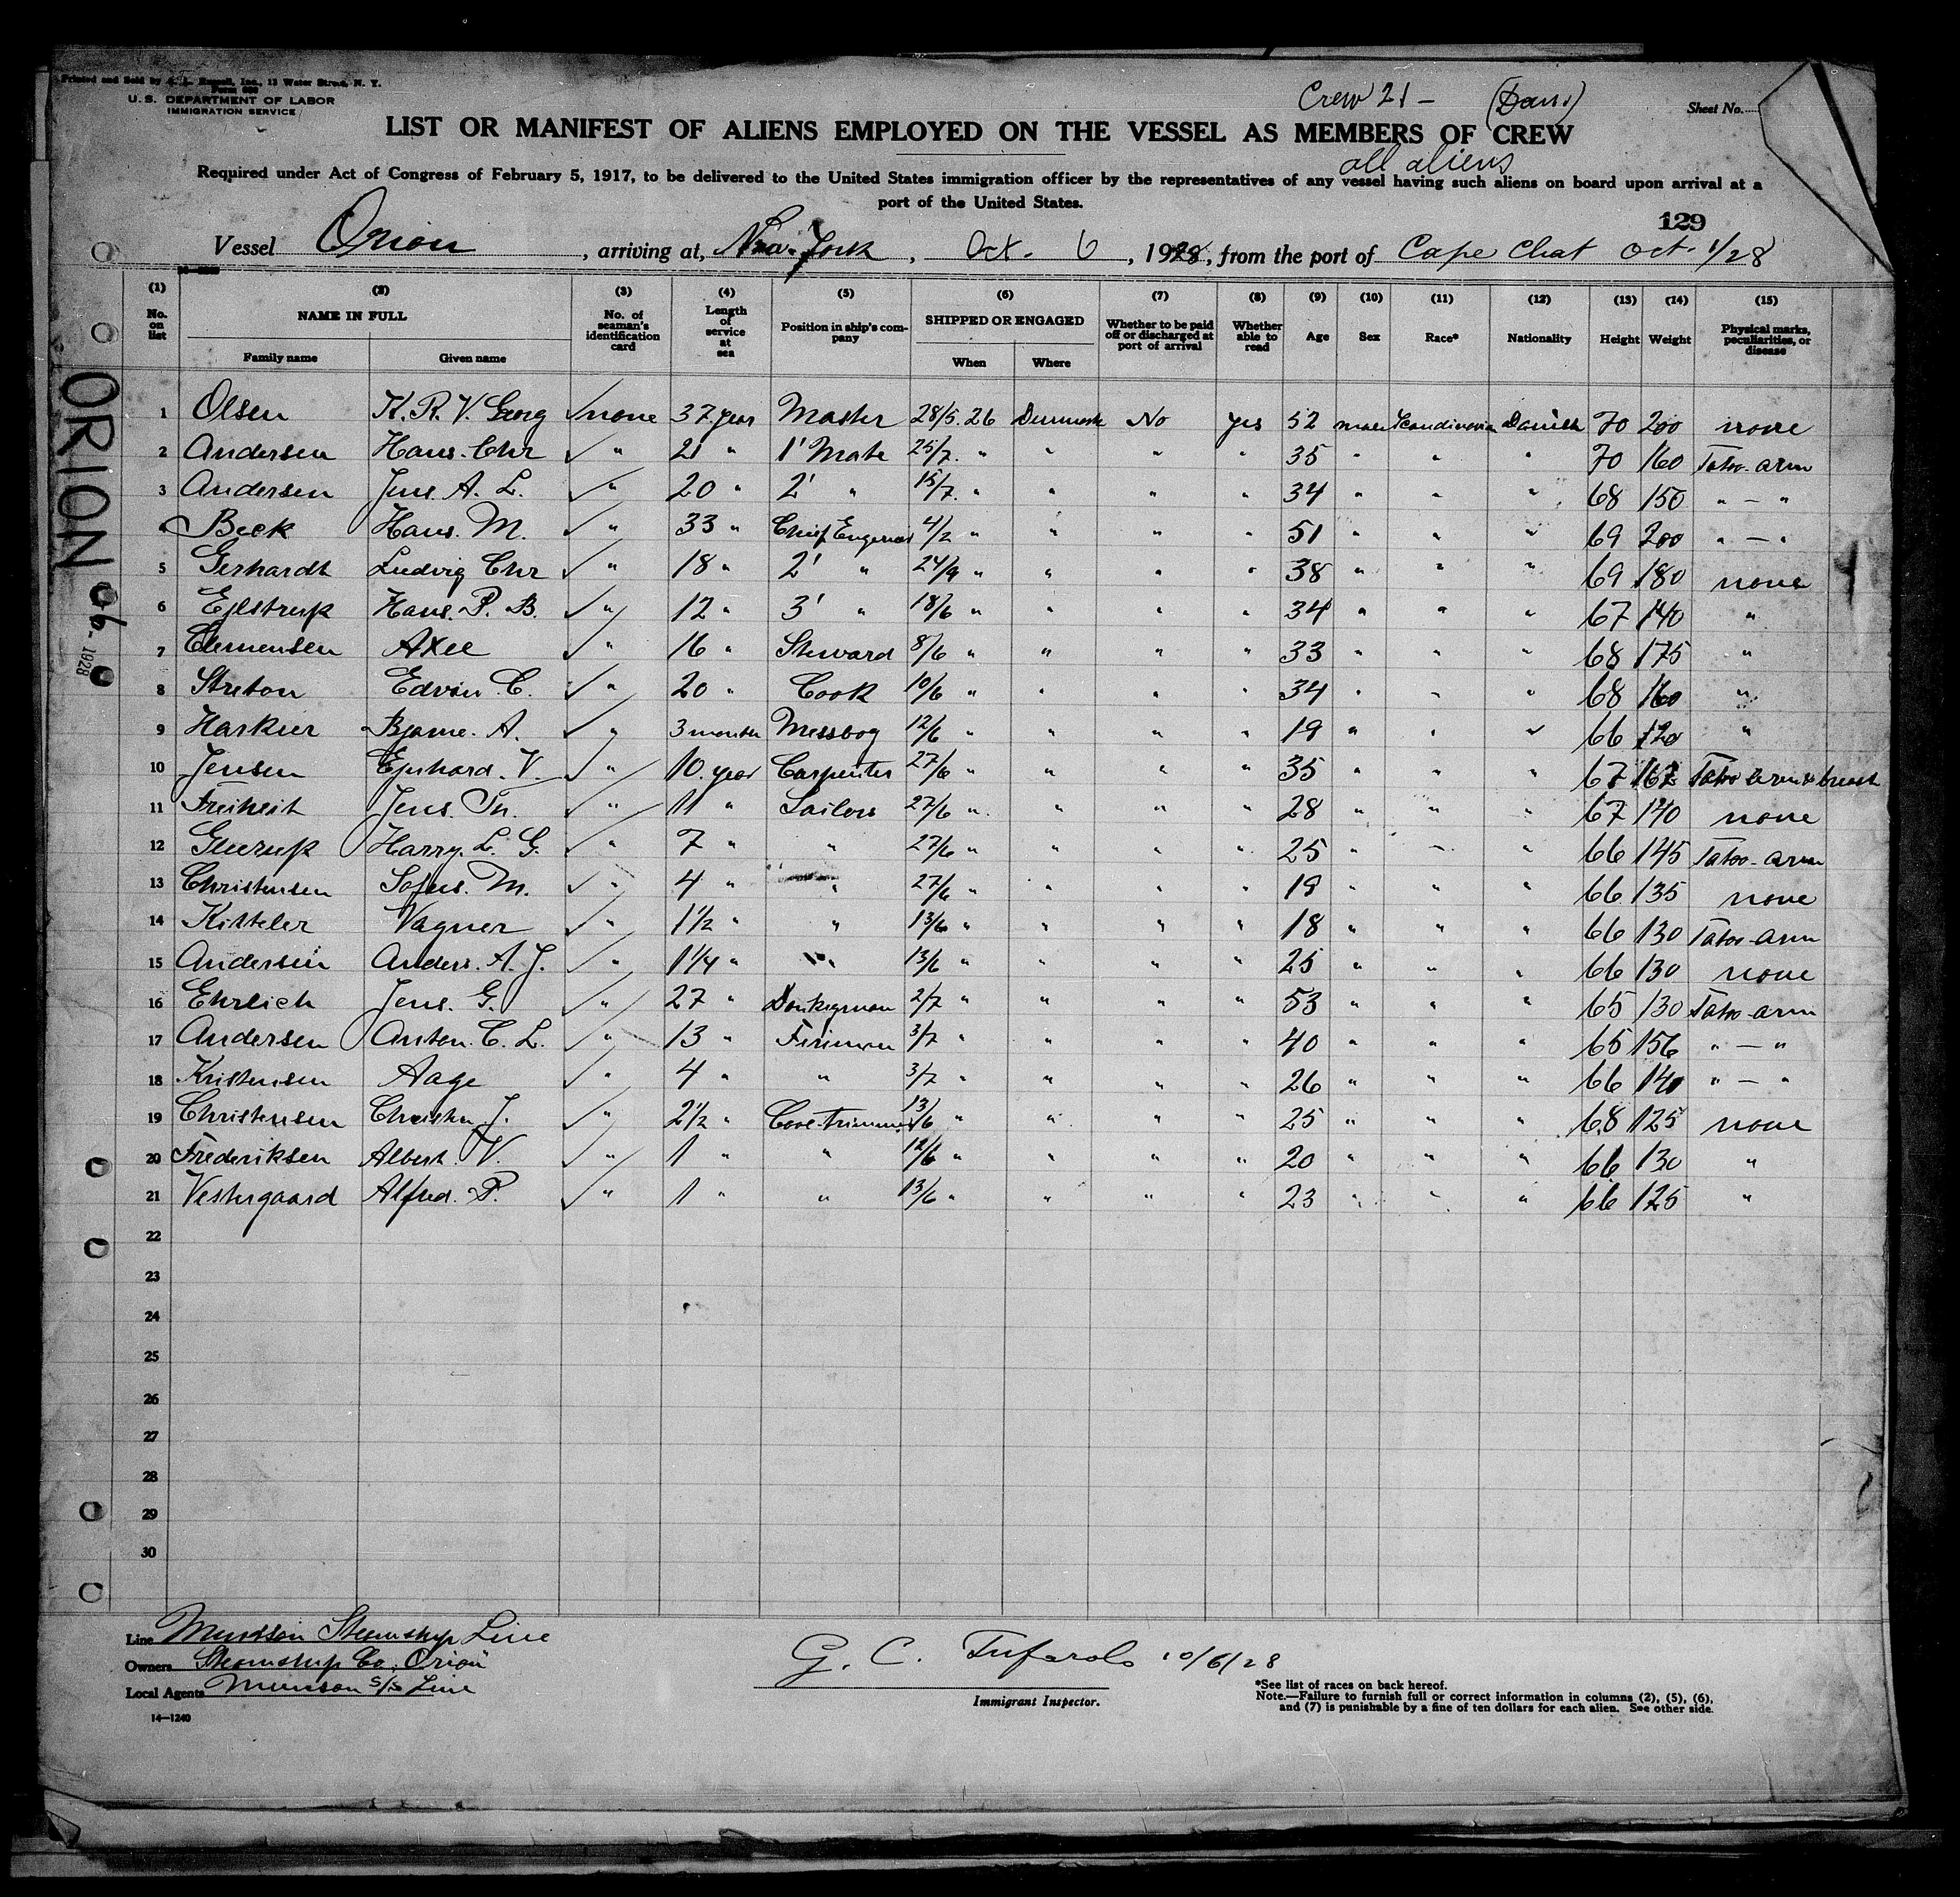 Printed and Sold by A. L. Russell, Inc., 12 Water Street, N. Y.
Form 680
U. S. DEPARTMENT OF LABOR
IMMIGRATION SERVICE
Crew 21 - (Dan.)
Sheet No.
LIST OR MANIFEST OF ALIENS EMPLOYED ON THE VESSEL AS MEMBERS OF CREW
all aliens
Required under Act of Congress of February 5, 1917, to be delivered to the United States immigration officer by the representatives of any vessel having such aliens on board upon arrival at a
port of the United States.
129
Vessel Orion, arriving at, New York, Oct. 6, 1928, from the port of Cape Chat Oct. 1/28
(1) (2) (3) (4) (5) (6) (7) (8) (9) (10) (11) (12) (13) (14) (15)
No. on list NAME IN FULL Family name Given name No. of seaman's identification card Length of service at sea Position in ship's company SHIPPED OR ENGAGED When Where Whether to be paid off or discharged at port of arrival Whether able to read Age Sex Race* Nationality Height Weight Physical marks, peculiarities, or disease
1 Olsen K. R. V. Georg ✓ none 37 year Master 28/5. 26 Denmark No yes 52 male Scandinavia Danish 70 200 none
2 Andersen Hans. Chr ✓ " 21 " 1' Mate 25/7. " " " " 35 " " " 70 160 Tatoo-arm
3 Andersen Jens. A. L. ✓ " 20 " 2' " 15/7. " " " " 34 " " " 68 150 " - "
4 Beck Hans. M. ✓ " 33 " Chief Engenier 4/2 " " " " 51 " " " 69 200 " - "
5 Gerhardt Ludvig Chr ✓ " 18 " 2' " 24/9 " " " " 38 " " " 69 180 none
6 Ejlstrup Hans. P. B. ✓ " 12 " 3' " 18/6 " " " " 34 " " " 67 140 "
7 Clemensen Axel ✓ " 16 " Steward 8/6 " " " " 33 " " " 68 175 "
8 Streton Edvin. C. ✓ " 20 " Cook 10/6 " " " " 34 " " " 68 160 "
9 Bjarne. A. ✓ " 3 month Messboy 12/6 " " " " 19 " " " 66 120 "
10 Jensen Ejnhard. V. ✓ " 10. year Carpenter 27/6 " " " " 35 " " " 67 167 Tatoo arm & breast
11 Freiheit Jens. Th. ✓ " 11 " Sailors 27/6 " " " " 28 " " " 67 140 none
12 Harry. L. G. ✓ " 7 " " 27/6 " " " " 25 " " " 66 145 Tatoo-arm
13 Christensen Sofus. M. ✓ " 4 " " 27/6 " " " " 19 " " " 66 135 none
14 Kitteler Vagner ✓ " 1 1/2 " " 13/6 " " " " 18 " " " 66 130 Tatoo-arm
15 Andersen Anders. A. J. ✓ " 1 1/4 " " 13/6 " " " " 25 " " " 66 130 none
16 Ehrlich Jens. G. ✓ " 27 " Donkeyman 2/7 " " " " 53 " " " 65 130 Tatoo-arm
17 Andersen Anton. C. L. ✓ " 13 " Firiman 3/7 " " " " 40 " " " 65 156 " - "
18 Kristensen Aage ✓ " 4 " " 3/7 " " " " 26 " " " 66 140 " - "
19 Christensen Christen J. ✓ " 2 1/2 " Cole-trimmer 13/6 " " " " 25 " " " 68 125 none
20 Frederiksen Albert. V. ✓ " 1 " " 12/6 " " " " 20 " " " 66 130 "
21 Vestergaard Alfred. P. ✓ " 1 " " 13/6 " " " " 23 " " " 66 125 "
22
23
24
25
26
27
28
29
30
ORION
1928
Line Munson Steamship Line
Owners Steamship Co, Orion
Local Agents Munson S/S Line
14—1240
G. C. Tufarolo 10/6/28
Immigrant Inspector.
*See list of races on back hereof.
Note.—Failure to furnish full or correct information in columns (2), (5), (6),
and (7) is punishable by a fine of ten dollars for each alien. See other side.